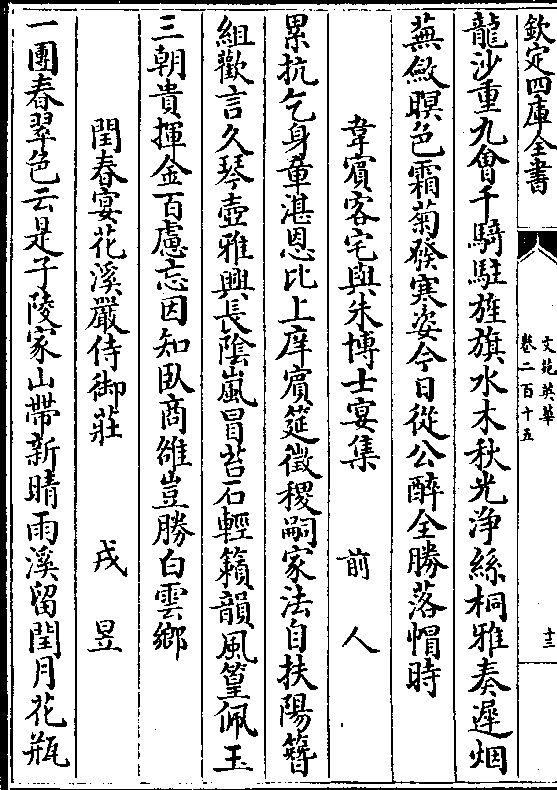 欽定四庫全書
文苑英華
卷二百十五
十三
龍沙重九會千騎駐旌旗水木秋光浄絲桐雅奏遲烟
蕪斂暝色霜菊發寒姿今日從公醉全勝落帽時
韋賓客宅與朱博士宴集 前人
累抗乞身章湛恩比上庠賓筵徵稷嗣家法自扶陽簪
組歡言久琴壺雅興長陰嵐冒苔石輕籟韻風篁佩玉
三朝貴揮金百慮忘因知臥商雒豈勝白雲鄉
閏春宴花溪嚴侍御莊 戎昱
一團春翠色云是子陵家山帶新晴雨溪留閏月花瓶